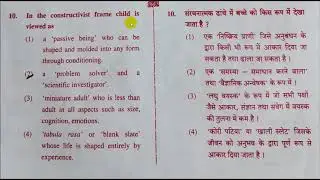 10. In the constructivist frame child is
viewed as
(1) a 'passive being' who can be
shaped and molded into any form
through conditioning.
(2) a 'problem solver' and a
'scientific investigator'.
(3) 'miniature adult' who is less than
adult in all aspects such as size,
cognition, emotions.
(4) 'tabula rasa' or 'blank slate'
whose life is shaped entirely by
experience.
10. संरचनात्मक ढांचे में बच्चे को किस रूप में देखा
जाता है ?
(1) एक 'निष्क्रिय प्राणी' जिसे अनुबंधन के
द्वारा किसी भी रूप में आकार दिया जा
सकता है तथा ढाला जा सकता है ।
(2) एक 'समस्या - समाधान करने वाला'
तथा 'वैज्ञानिक अन्वेषक' के रूप में ।
(3) 'लघु वयस्क' के रूप में जो सभी पक्षों
जैसे आकार, संज्ञान तथा संवेग में वयस्क
की तुलना में कम है ।
(4) 'कोरी पटिया' या 'खाली स्लेट' जिसके
जीवन को अनुभव के द्वारा पूर्ण रूप से
आकार दिया जाता है ।